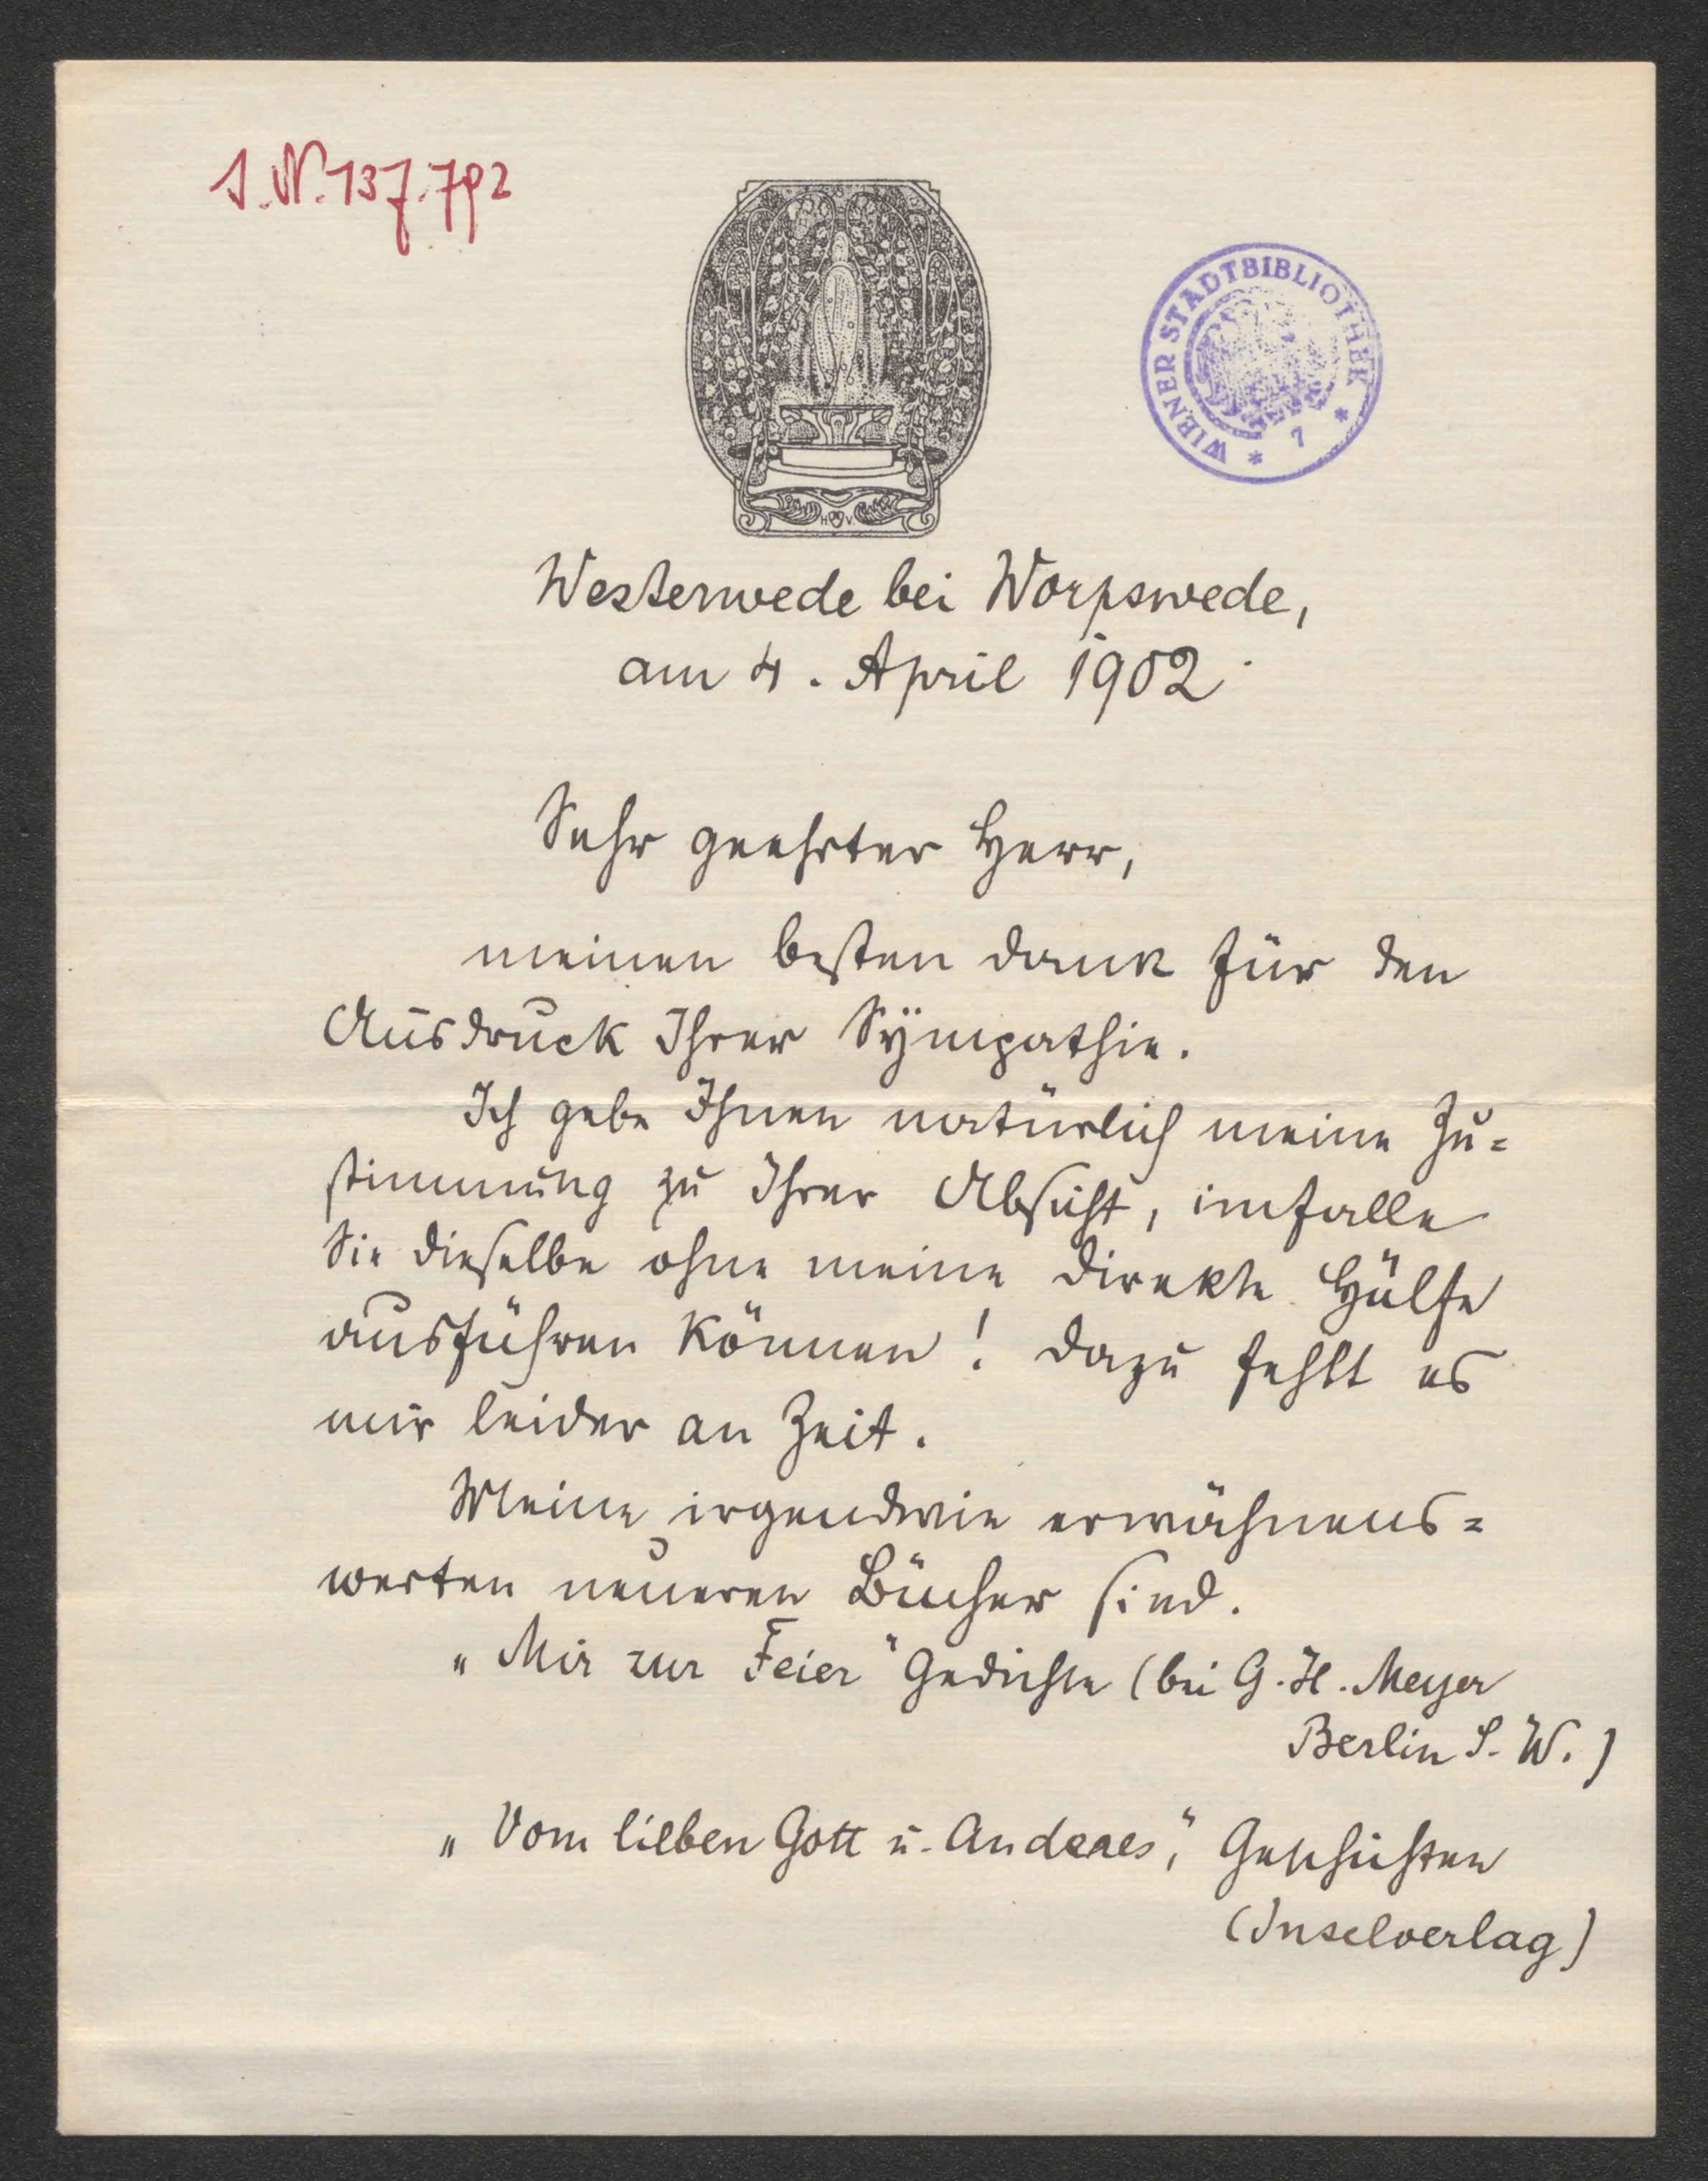 I.N. 137.792
WIENER STADTBIBLIOTHEK * 7 *
H V.
Westerwede bei Worpswede,
am 4. April 1902.
Sehr geehrter Herr,
meinen besten Dank für den
Ausdruck Ihrer Sympathie.
Ich gebe Ihnen natürlich meine Zu=
stimmung zu Ihrer Absicht, imfalle
Sie dieselbe ohne meine direkte Hülfe
ausführen können! Dazu fehlt es
mir leider an Zeit.
Meine irgendwie erwähnens=
werten neueren Bücher sind.
„Mir zur Feier" Gedichte (bei G. H. Meyer
Berlin S. W.)
„Vom lieben Gott u. Anderes", Geschichten
(Inselverlag)